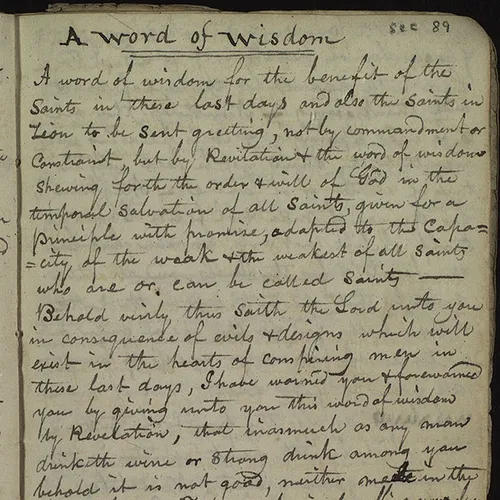 Sec 89
A Word of Wisdom
A word of wisdom for the benefit of the
Saints in these last days and also the Saints in
Zion to be sent greeting, not by commandment or
Constraint, but by Revilation & the word of wisdom
Shewing forth the order & will of God in the
temporal Salvation of all Saints, given for a
Principle with promise, adapted to the Capa=
=city of the weak & the weakest of all Saints
who are or can be called Saints —
Behold virily thus Saith the Lord unto you
in consequence of evils & designs which will
exist in the hearts of conspiring men in
these last days, I have warned you & forewarned
you by giving unto you this word of wisdom
by Revelation, that inasmuch as any man
drinketh wine or Strong drink among you
behold it is not good, neither in the